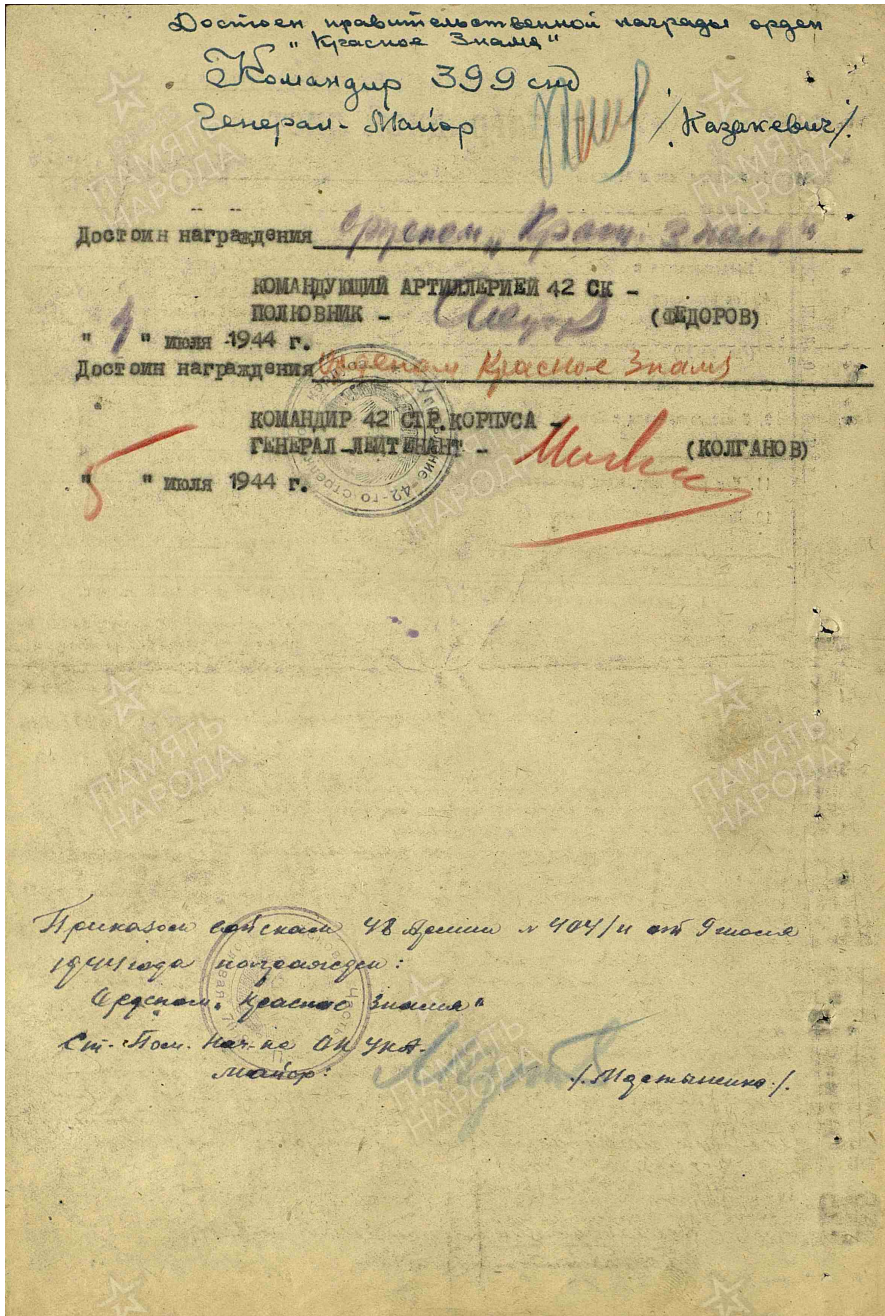 Достоен правительственной награды орден
"Красное Знамя"
Командир 399 сд
Генерал-Майор /Казакевич/.
Достоин награждения Орденом "Красн. Знамя"
КОМАНДУЮЩИЙ АРТИЛЛЕРИЕЙ 42 СК -
ПОЛКОВНИК - (ФЕДОРОВ)
" 4 " июля 1944 г.
Достоин награждения Орденом Красное Знамя
КОМАНДИР 42 СТР.КОРПУСА -
ГЕНЕРАЛ-ЛЕЙТЕНАНТ - (КОЛГАНОВ)
" 5 " июля 1944 г.
Приказом войскам 48 Армии № 404/н от 9 июля
1944 года награжден:
Орденом "Красное Знамя"
Ст. Пом. Нач-ка ОК УКА.
майор:
ПАМЯТЬ
НАРОДА